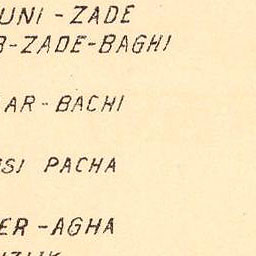 UNI - ZADE
B-ZADE-BAGHI
AR - BACHI
SI PACHA
ER - AGHA